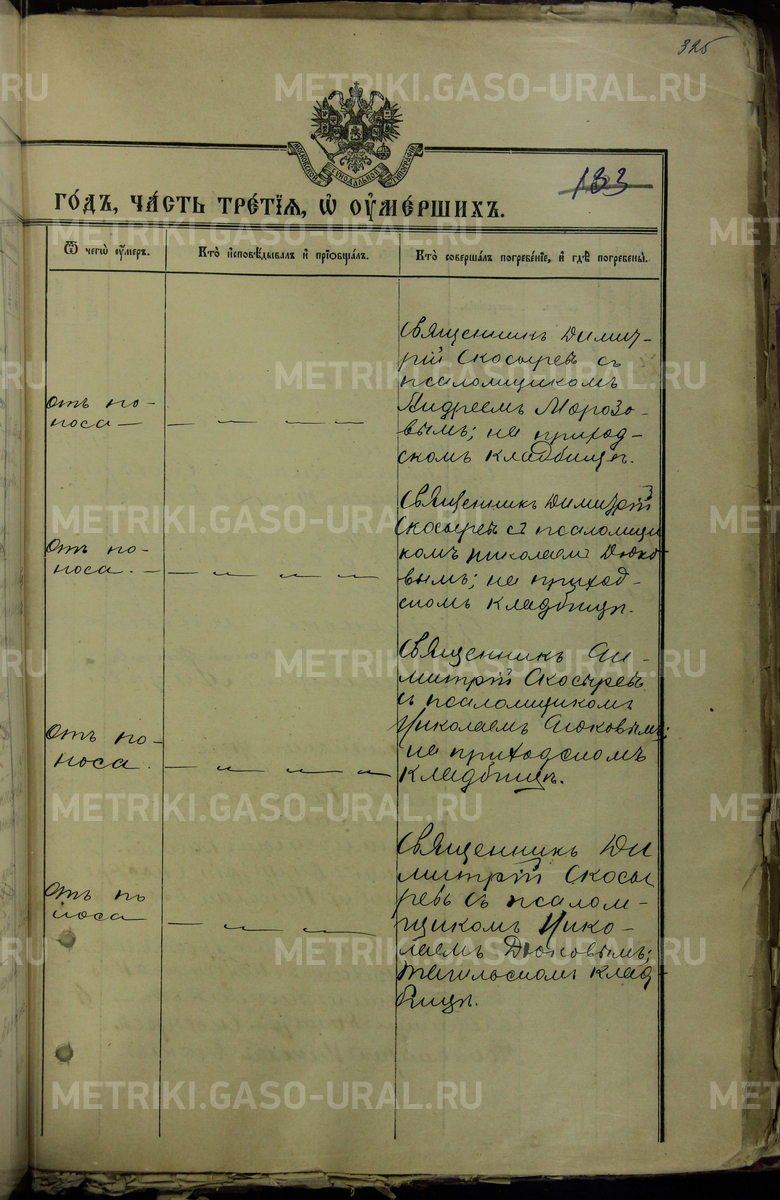 325
МОСКОВСКОЙ СѴНОДАЛЬНОЙ ТИПОГРАФІИ
133
ГОДЪ, ЧАСТЬ ТРЕТІЯ, Ѡ ОУМЕРШИХЪ.
Ѿ чегѡ оумеръ.
Кто исповѣдывалъ и пріобщалъ.
Кто совершалъ погребеніе, и гдѣ погребены.
отъ по-
носа —
Священникъ Димит-
рій Скосыревъ съ
псаломщикомъ
Андреемъ Морозо-
вымъ; на приход-
скомъ кладбищѣ.
отъ по-
носа. —
Священникъ Димитрій
Скосыревъ съ псаломщи
комъ Николаемъ Дюко-
вымъ; на приход-
скомъ кладбищѣ.
отъ по-
носа.
Священникъ Ди-
митрій Скосыревъ
съ псаломщикомъ
Николаемъ Дюковымъ;
на приходскомъ
кладбищѣ.
отъ по
носа
Священникъ Ди
митрій Скосы
ревъ съ псалом-
щикомъ Нико-
лаемъ Дюковымъ;
клад-
бищѣ.
METRIKI.GASO-URAL.RU